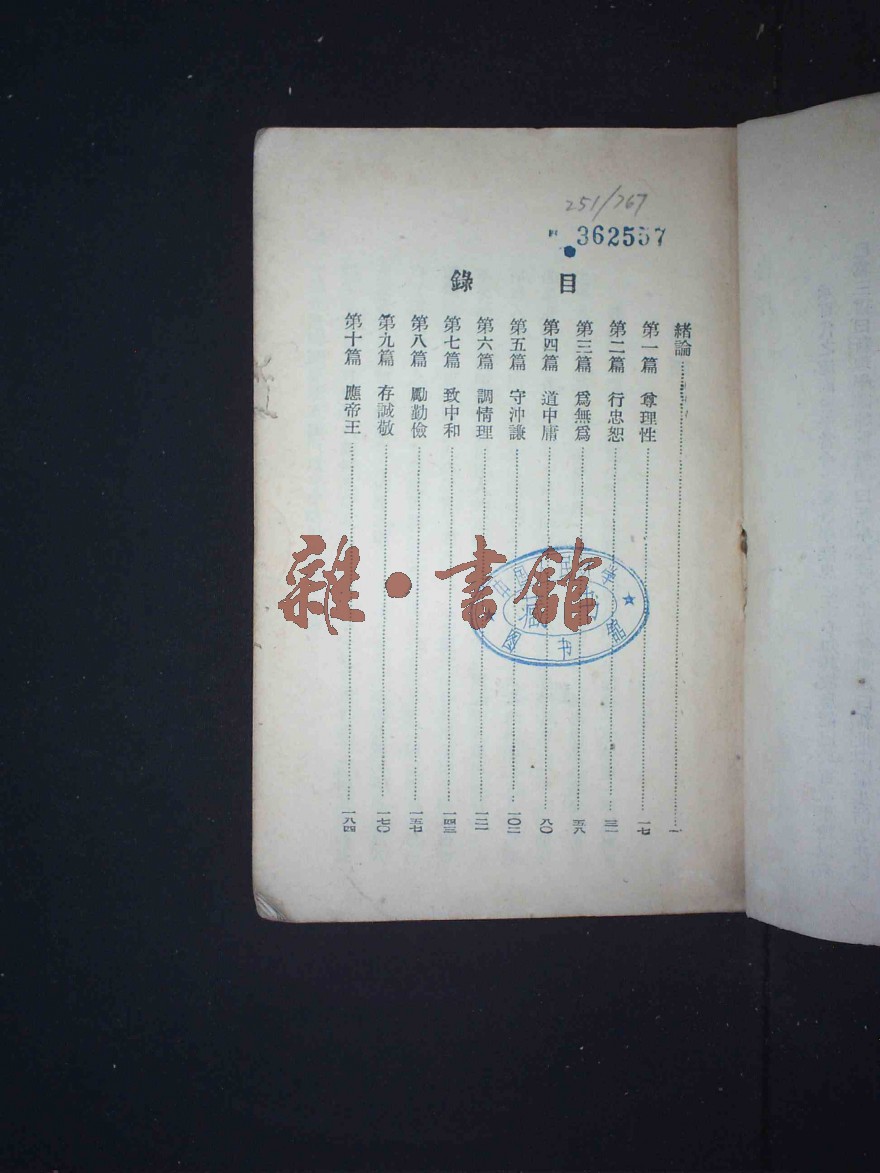 251/767
362557
目錄
緒論 一
第一篇 尊理性 一七
第二篇 行忠恕 三一
第三篇 爲無爲 五八
第四篇 道中庸 八〇
第五篇 守沖謙 一〇二
第六篇 調情理 一二一
第七篇 致中和 一四三
第八篇 勵勤儉 一五七
第九篇 存誠敬 一七〇
第十篇 應帝王 一八四
雜·書館
图书馆